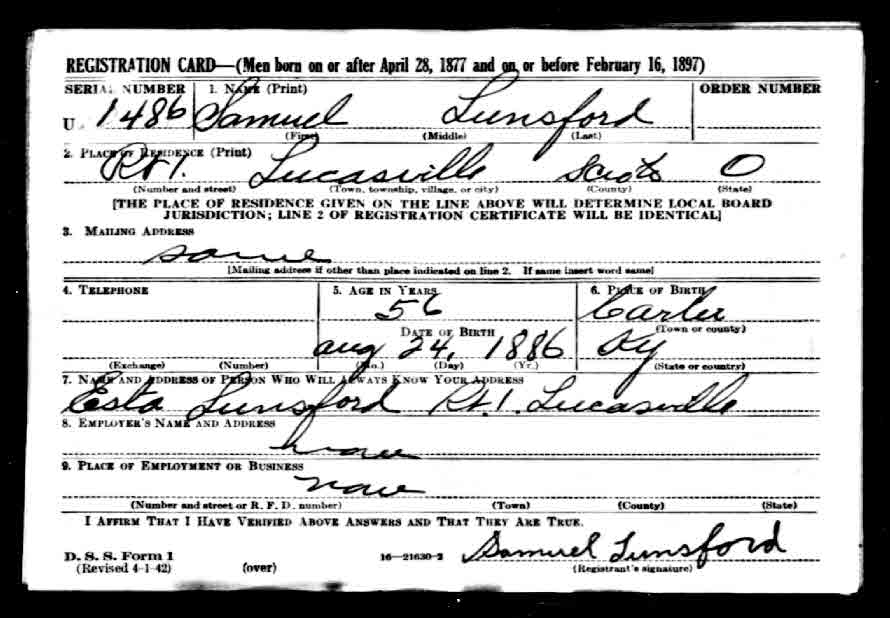 REGISTRATION CARD—(Men born on or after April 28, 1877 and on or before February 16, 1897)
SERIAL NUMBER 1. NAME (Print) ORDER NUMBER
U 1486 Samuel Lunsford
(First) (Middle) (Last)
2. PLACE OF RESIDENCE (Print)
Rt 1. Lucasville Scioto O
(Number and street) (Town, township, village, or city) (County) (State)
[THE PLACE OF RESIDENCE GIVEN ON THE LINE ABOVE WILL DETERMINE LOCAL BOARD
JURISDICTION; LINE 2 OF REGISTRATION CERTIFICATE WILL BE IDENTICAL]
3. MAILING ADDRESS
same
[Mailing address if other than place indicated on line 2. If same insert word same]
4. TELEPHONE 5. AGE IN YEARS 6. PLACE OF BIRTH
56 Carter
DATE OF BIRTH (Town or county)
aug 24, 1886 Ky
(Exchange) (Number) (Mo.) (Day) (Yr.) (State or country)
7. NAME AND ADDRESS OF PERSON WHO WILL ALWAYS KNOW YOUR ADDRESS
Esta Lunsford Rt. 1. Lucasville
8. EMPLOYER'S NAME AND ADDRESS
none
9. PLACE OF EMPLOYMENT OR BUSINESS
none
(Number and street or R. F. D. number) (Town) (County) (State)
I AFFIRM THAT I HAVE VERIFIED ABOVE ANSWERS AND THAT THEY ARE TRUE.
D. S. S. Form 1 16—21630-2 Samuel Lunsford
(Revised 4-1-42) (over) (Registrant's signature)